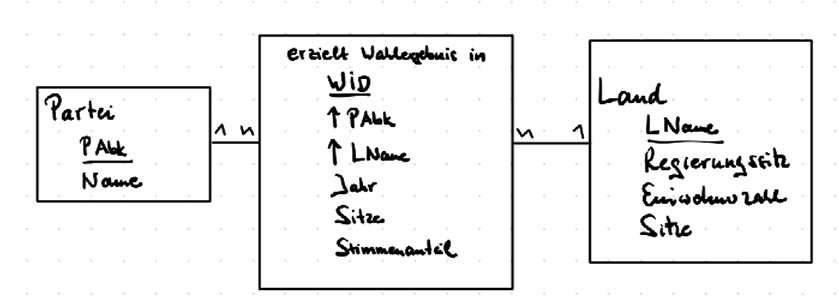 Partei
PAbk
Name
1 n
erzielt Wahlergebnis in
WID
↑ PAbk
↑ LName
Jahr
Sitze
Stimmenanteil
n 1
Land
LName
Regierungssitz
Einwohnerzahl
Sitze